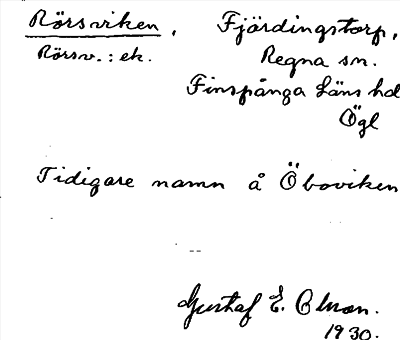 Rörsviken, Fjärdingstorp,
Rörsv. : ek. Regna sn.
Finspånga Läns hd
Ögl
Tidigare namn å Öboviken
--
Gustaf E. Olson.
1930.